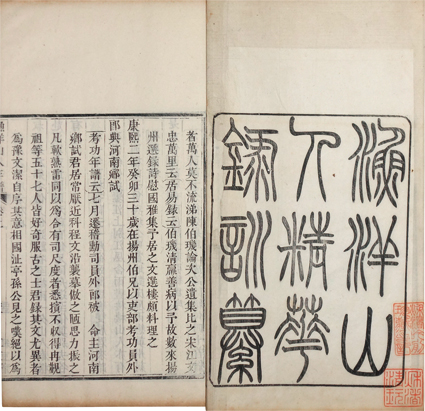 漁洋山
人精華
錄訓纂
者萬人莫不流涕陳伯璣論次公遺集比之宋江文
忠萬里云居易錄云伯璣清羸善病以予故數來揚
州選錄詩慰國雅集予居之文選樓頗料理之
康熙二年癸卯三十歲在揚州伯兄以吏部考功員外
郎典河南鄉試
考功年譜云七月遷稽勳司員外郎被 命主河南
鄉試君居常厭近科程文沿襲摹倣之陋思力振之
凡軟熟雷同以為合有司尺度者悉擯不收得冉覲
祖等五十七人皆好奇服古之士君錄其文尤異者
為 文潔自序其意相國沚亭孫公見之嘆絕以為